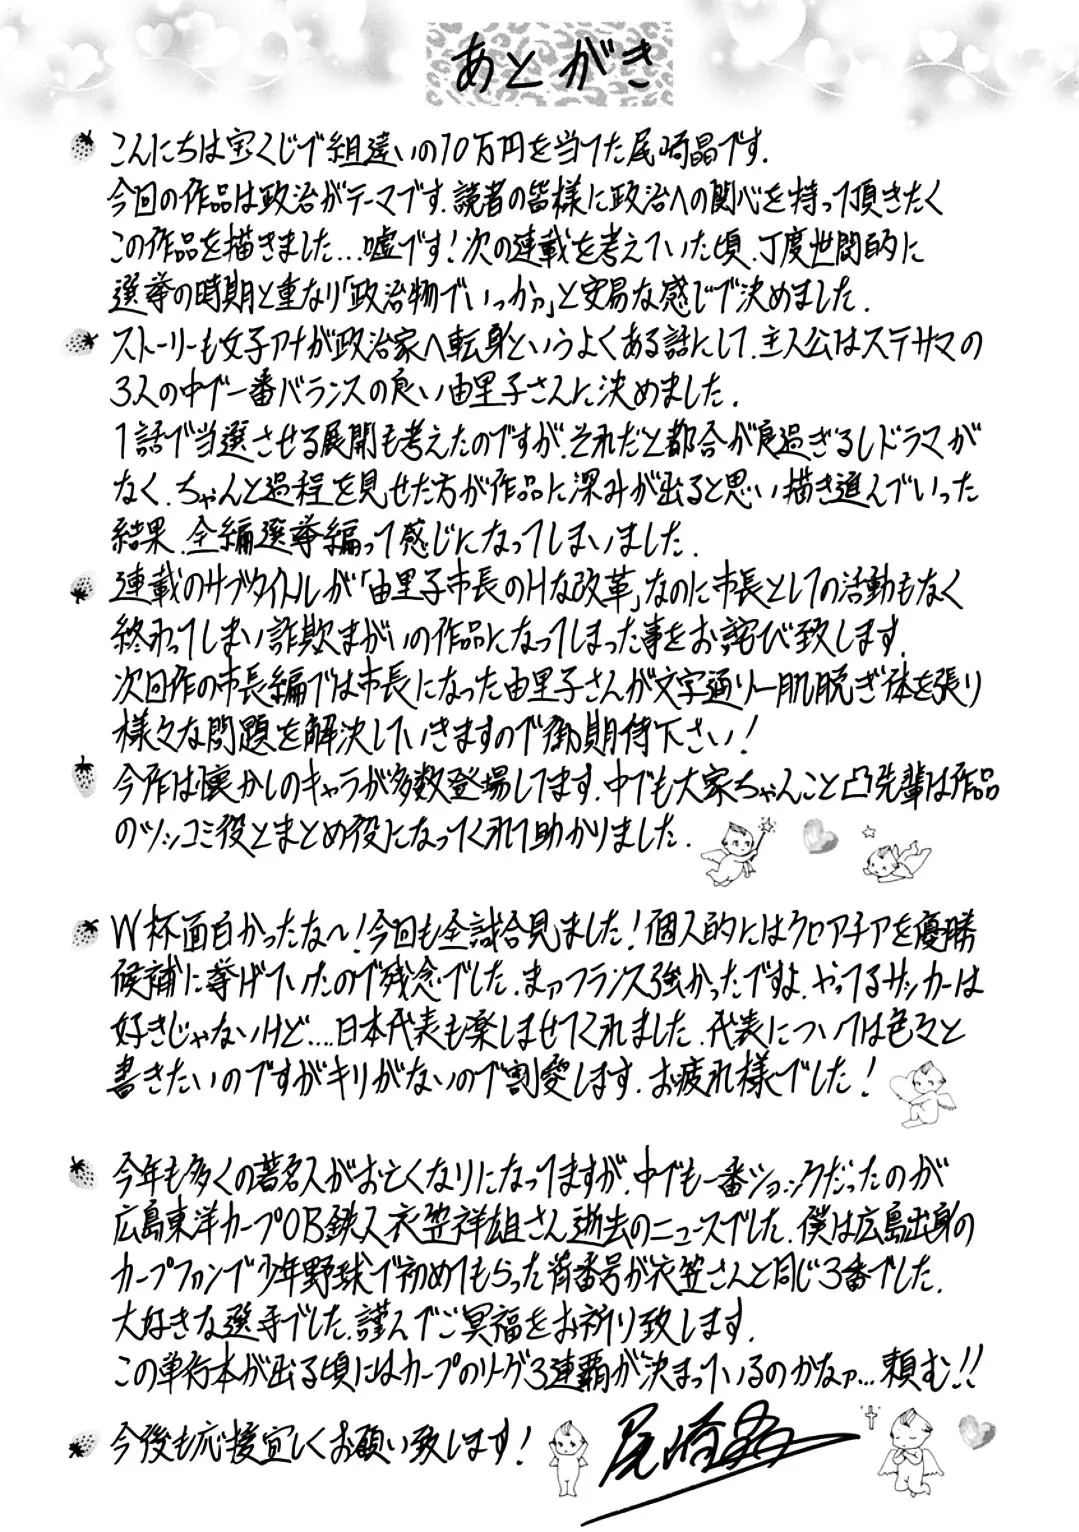 あとがき
こんにちは宝くじで組違いの10万円を当てた尾崎晶です.
今回の作品は政治がテーマです.読者の皆様に政治への関心を持って頂きたく
この作品を描きました…嘘です!次の連載を考えていた頃、丁度世間的に
選挙の時期と重なり「政治物でいっかァ」と安易な感じで決めました.
ストーリーも女子アナが政治家へ転身というよくある話にして.主人公はステサマの
3人の中で一番バランスの良い由里子さんに決めました.
1話で当選させる展開も考えたのですが.それだと都合が良過ぎるしドラマが
なく.ちゃんと過程を見せた方が作品に深みが出ると思い描き進んでいった
結果.全編選挙編って感じになってしまいました.
連載のサブタイトルが「由里子市長のHな改革」なのに市長としての活動もなく
終わってしまい詐欺まがいの作品となってしまった事をお詫び致します.
次回作の市長編では市長になった由里子さんが文字通り一肌脱ぎ体を張り
様々な問題を解決していきますので御期待下さい!
今作は懐かしのキャラが多数登場してます.中でも大家ちゃんこと凸先輩は作品
のツッコミ役とまとめ役になってくれて助かりました.
W杯面白かったな~!今回も全試合見ました!個人的にはクロアチアを優勝
候補に挙げていたので残念でした.まァフランス強かったですよ.やってるサッカーは
好きじゃないけど….日本代表も楽しませてくれました.代表については色々と
書きたいのですがキリがないので割愛します.お疲れ様でした!
今年も多くの著名人がお亡くなりになってますが.中でも一番ショックだったのが
広島東洋カープOB鉄人衣笠祥雄さん逝去のニュースでした.僕は広島出身の
カープファンで少年野球で初めてもらった背番号が衣笠さんと同じ3番でした.
大好きな選手でした.謹んでご冥福をお祈り致します.
この単行本が出る頃にはカープのリーグ3連覇が決まっているのかなァ…頼む!!
今後も応援宜しくお願い致します!
尾崎晶